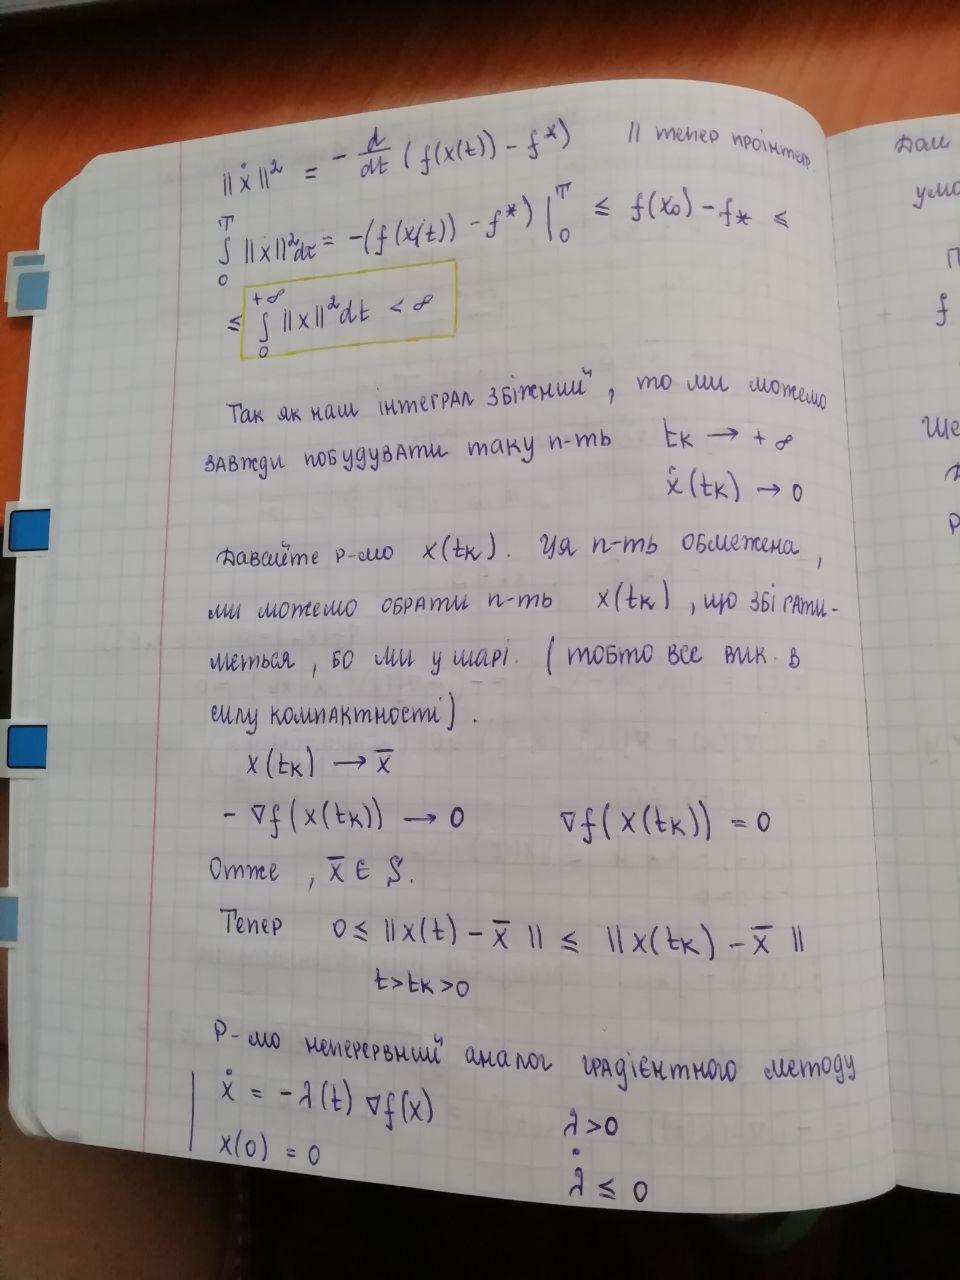 ||ẋ||² = - d/dt (f(x(t)) - f*)   || тепер проінтегр
∫₀ᵀ ||ẋ||²dτ = -(f(x(t)) - f*) |₀ᵀ ≤ f(x₀) - f* ≤
≤ ∫₀^{+∞} ||x||²dt < ∞
Так як наш інтеграл збіжний, то ми можемо
завжди побудувати таку п-ть   tk → +∞
ẋ(tk) → 0
Давайте р-мо x(tk). Ця п-ть обмежена,
ми можемо обрати п-ть x(tk), що збігати-
меться, бо ми у шарі. (тобто все вик. в
силу компактності).
x(tk) → x̄
- ∇f(x(tk)) → 0   ∇f(x(tk)) = 0
Отже, x̄ ∈ S.
Тепер 0 ≤ ||x(t) - x̄|| ≤ ||x(tk) - x̄||
t>tk>0
Р-мо неперервний аналог градієнтного методу
ẋ = -λ(t) ∇f(x)   λ>0
x(0) = 0   λ̇ ≤ 0
умо
П
f
Ще
Д
Р